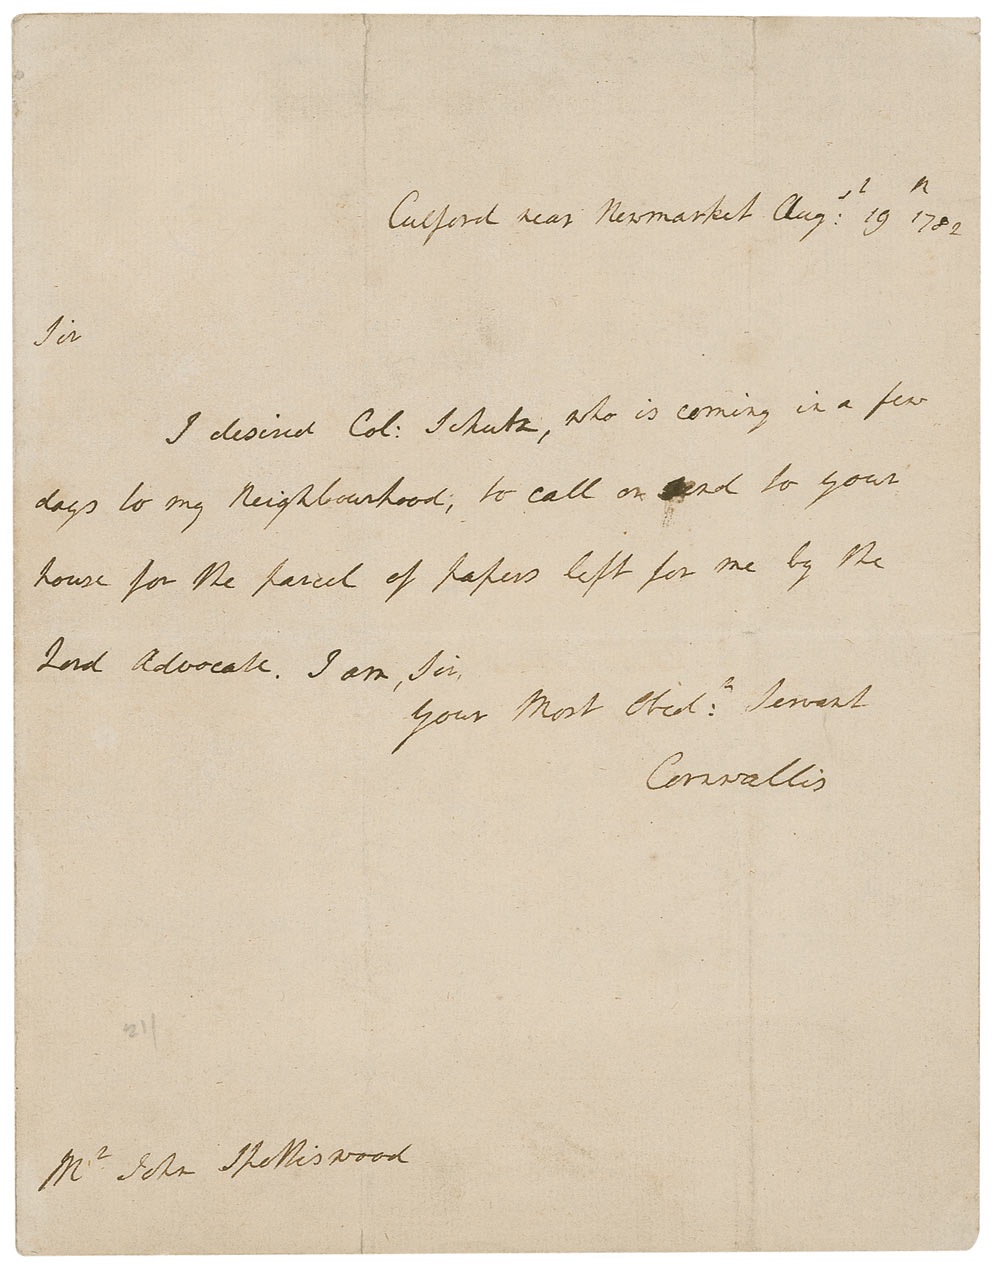 Culford near Newmarket Augst: 19th 1782
Sir
I desired Col: Schutz, who is coming in a few
days to my Neighbourhood, to call or send to your
house for the parcel of papers left for me by the
Lord Advocate. I am, Sir,
your Most Obedt: Servant
Cornwallis
211
Mr John Spottiswood